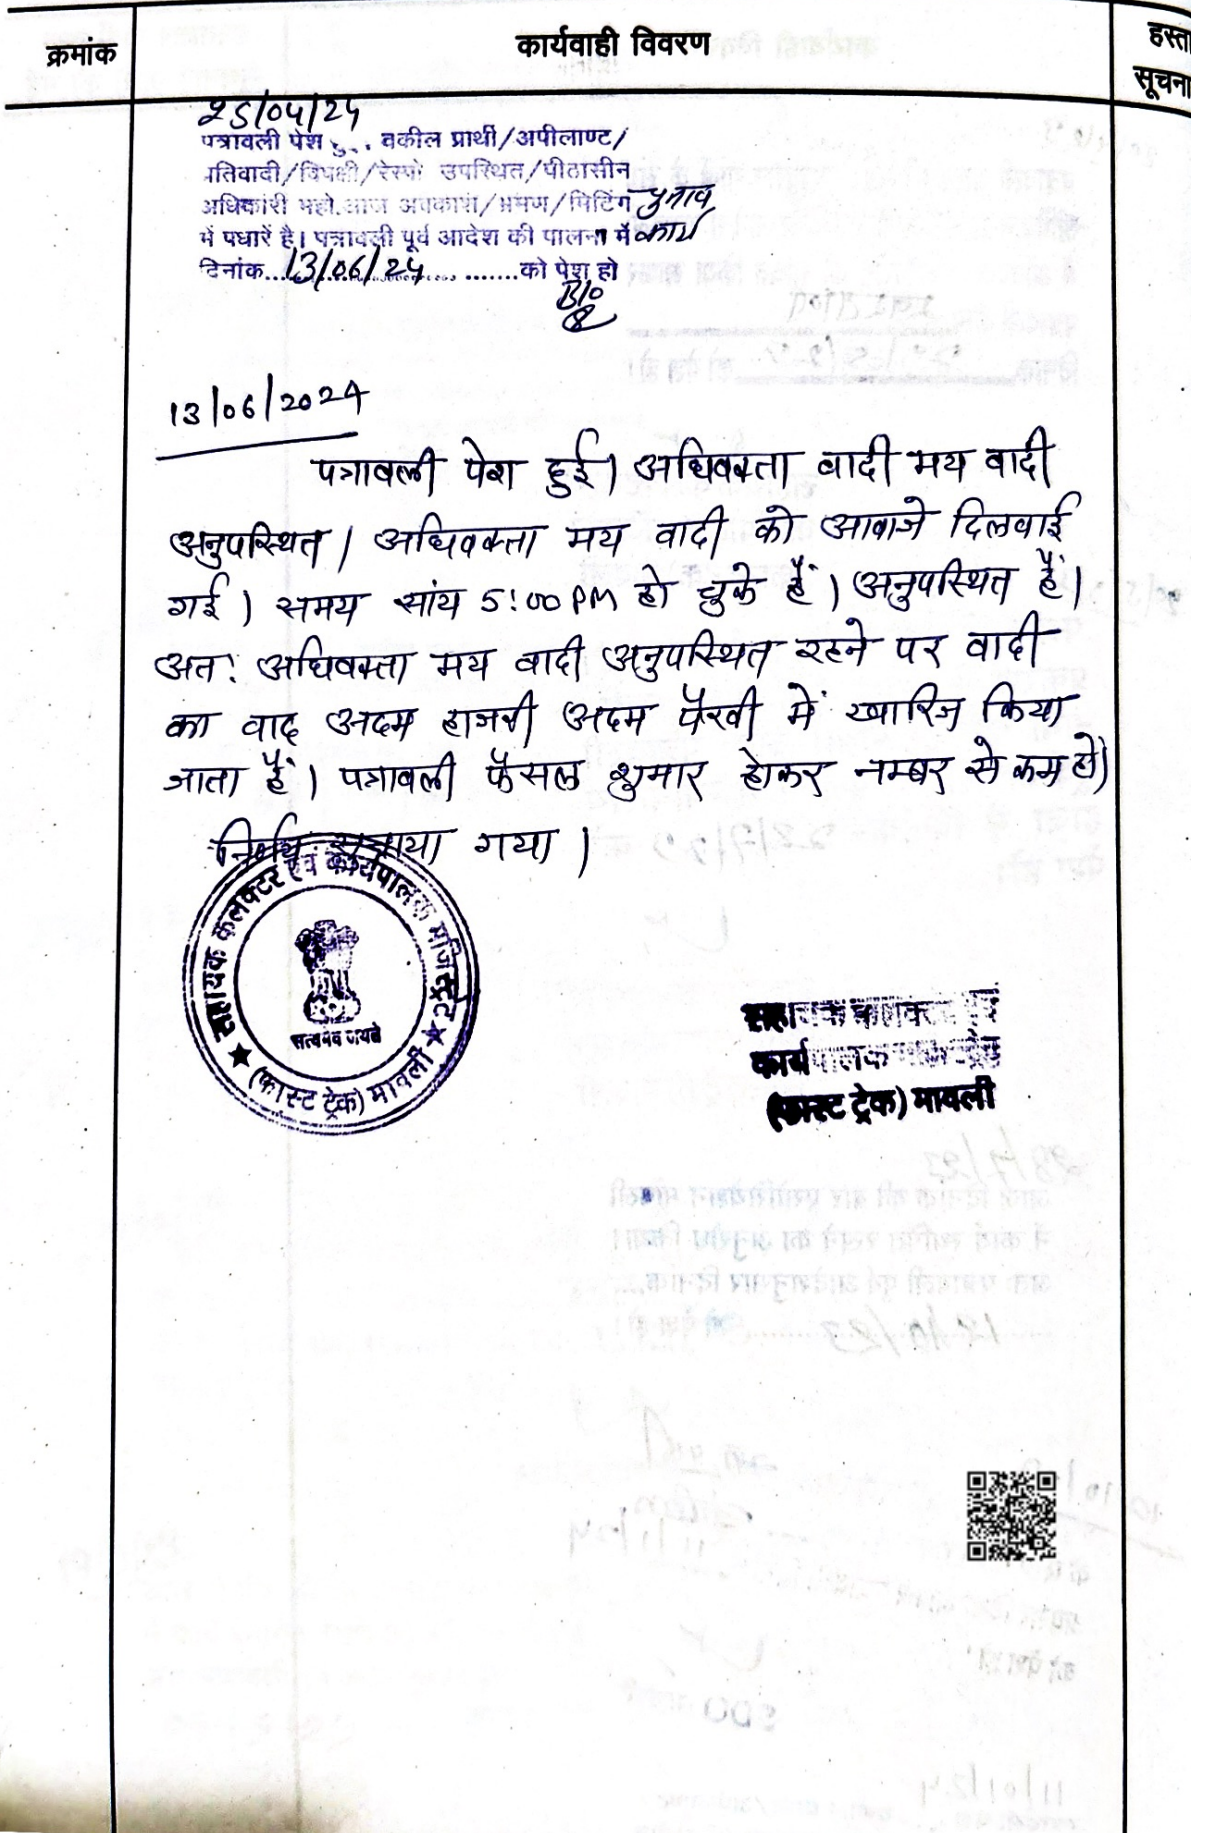 क्रमांक
कार्यवाही विवरण
हस्ता
सूचना
25/04/24
पत्रावली पेश हु... वकील प्रार्थी/अपीलाण्ट/
प्रतिवादी/विपक्षी/रेस्पो उपस्थित/पीठासीन
अधिकारी महो. आज अवकाश/भ्रमण/मिटिंग चुनाव
में पधारें है। पत्रावली पूर्व आदेश की पालना में कार्य
दिनांक....13/06/24............को पेश हो
13/06/2024
पत्रावली पेश हुई। अधिवक्ता वादी मय वादी
अनुपस्थित। अधिवक्ता मय वादी को आवाजे दिलवाई
गई। समय सांय 5:00 PM हो चुके हैं। अनुपस्थित हैं।
अत: अधिवक्ता मय वादी अनुपस्थित रहने पर वादी
का वाद अदम हाजरी अदम पैरवी में खारिज किया
जाता हैं। पत्रावली फैसल शुमार होकर नम्बर से कम हो।
निर्णय सुनाया गया।
सहायक कलक्टर एवं कार्यपालक मजिस्ट्रेट
सत्यमेव जयते
★ (फास्ट ट्रेक) मावली ★
सहायक कलक्टर एवं
कार्यपालक मजिस्ट्रेट
(फास्ट ट्रेक) मावली